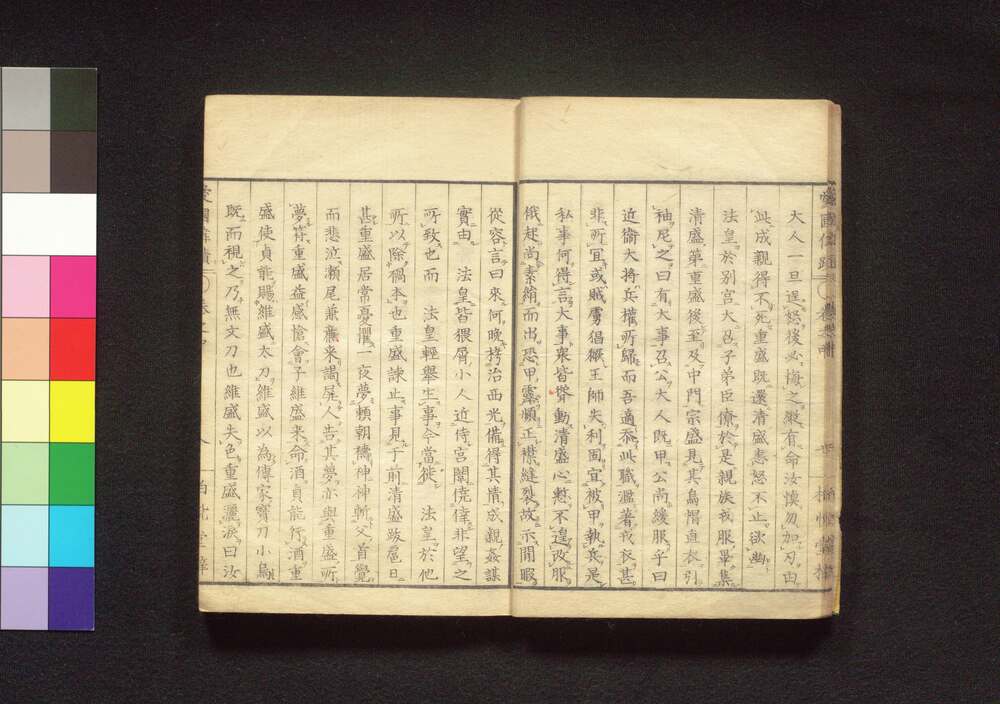 大人一旦逞怒後必悔之縱有命汝愼勿加刃由
此成親得不死重盛既還清盛恚怒不止欲幽
法皇於別宮大召子弟臣僚於是親族戎服畢集
清盛第重盛後至及中門宗盛見其烏帽直衣引
袖尤之曰有大事召公大人既甲公尚緩服乎曰
近衞大將兵權所歸而吾適忝此職濫著戎衣甚
非所宜或賊虜猖獗王師失利固宜被甲執兵是
私事何得言大事衆皆聳動清盛心愁不遑改服
俄起尚素絹而出恐甲露頻正襟縫裂故示閒暇
從容言曰來何晩拷治西光備得其情成親姦謀
實由 法皇皆猥屑小人近侍宮闈僥倖非望之
所致也而 法皇輕舉生事今當徙 法皇於他
所以除禍本也重盛諫止事見于前清盛跋扈日
甚重盛居常憂懼一夜夢賴朝禱神神斬父首覺
而悲泣瀨尾兼康來謁屏人告其夢亦與重盛所
夢符重盛益感愴會子維盛來命酒貞能行酒重
盛使貞能賜維盛太刀維盛以為傳家寶刀小烏
既而視之乃無文刀也維盛失色重盛灑淚曰汝